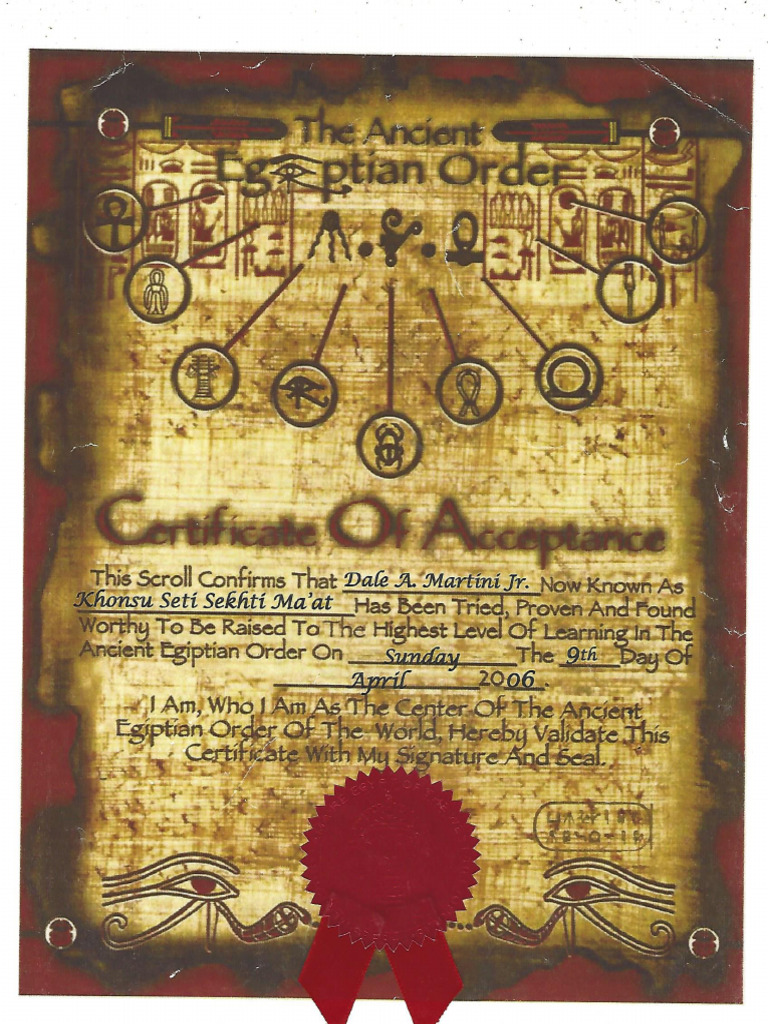 The Ancient
Egiptian Order
Certificate Of Acceptance
This Scroll Confirms That Dale A. Martini Jr. Now Known As
Khonsu Seti Sekhti Ma'at Has Been Tried, Proven And Found
Worthy To Be Raised To The Highest Level Of Learning In The
Ancient Egiptian Order On Sunday The 9th Day Of
April 2006.
I Am, Who I Am As The Center Of The Ancient
Egiptian Order Of The World, Hereby Validate This
Certificate With My Signature And Seal.